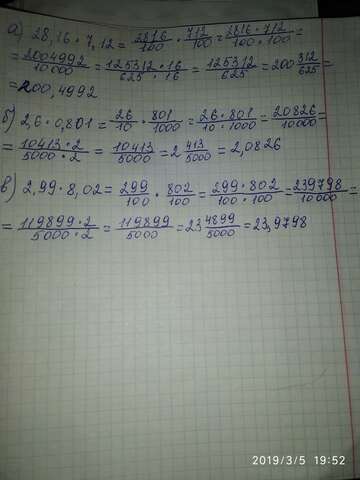 а) 28,16 · 7,12 = 2816/100 · 712/100 = 2816 · 712/100 · 100 =
= 2004992/10000 = 125312 · 16/625 · 16 = 125312/625 = 200 312/625 =
= 200,4992
б) 2,6 · 0,801 = 26/10 · 801/1000 = 26 · 801/10 · 1000 = 20826/10000 =
= 10413 · 2/5000 · 2 = 10413/5000 = 2 413/5000 = 2,0826
в) 2,99 · 8,02 = 299/100 · 802/100 = 299 · 802/100 · 100 = 239798/10000 =
= 119899 · 2/5000 · 2 = 119899/5000 = 23 4899/5000 = 23,9798
2019/3/5 19:52